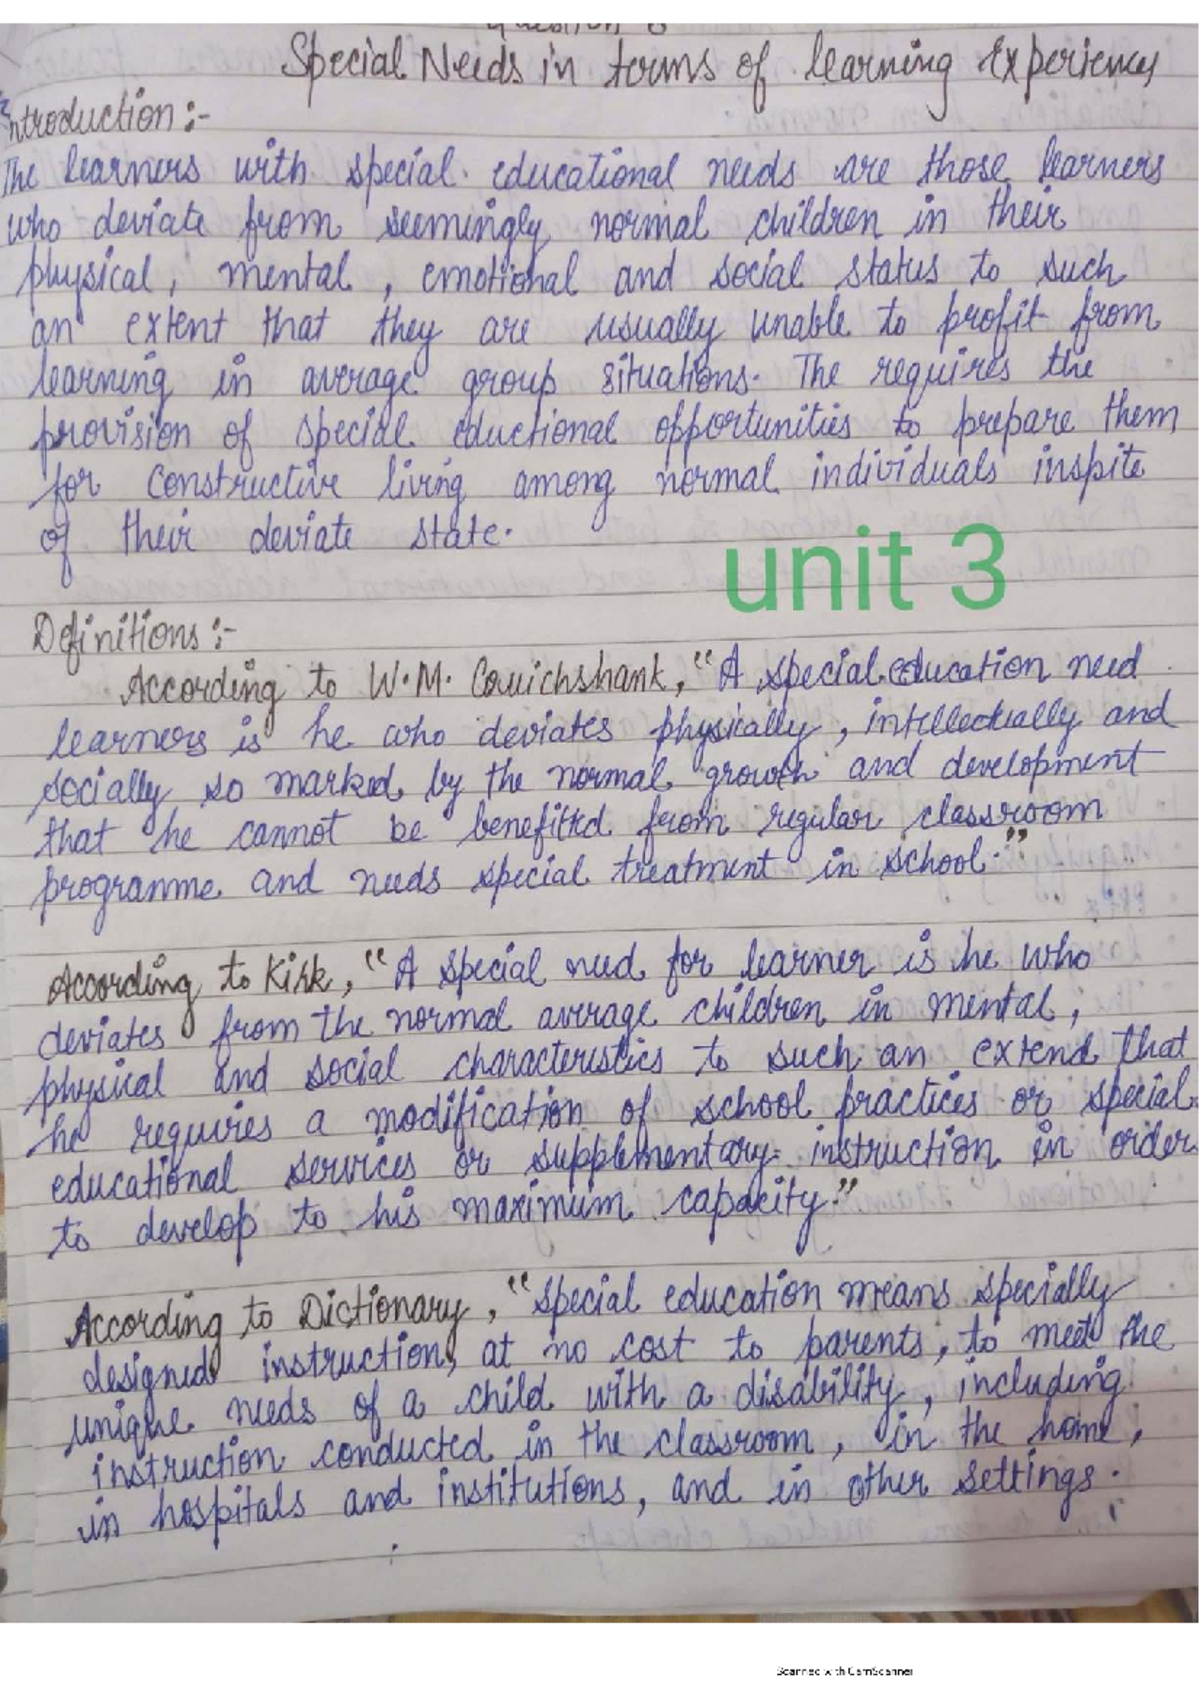 Question 8
Special Needs in terms of learning Experiency
Introduction :-
The learners with special educational needs are those learners
who deviate from seemingly normal children in their
physical, mental, emotional and social status to such
an extent that they are usually unable to profit from
learning in average group situations. The requires the
provision of special eductional opportunities to prepare them
for constructive living among normal individuals inspite
of their deviate state.
unit 3
Definitions :-
According to W.M. Couichshank, "A special education need
learners is he who deviates physically, intellectually and
socially so marked by the normal growth and development
that he cannot be benefitted from regular classroom
programme and needs special treatment in school."
According to Kirk, "A special need for learner is he who
deviates from the normal average children in mental,
physical and social characteristics to such an extend that
he requires a modification of school practices or special
educational services or supplementary instruction in order
to develop to his maximum capacity."
According to Dictionary, "special education means specially
designed instruction, at no cost to parents, to meet the
unique needs of a child with a disability, including
instruction conducted in the classroom, in the home,
in hospitals and institutions, and in other settings.
Scanned with CamScanner